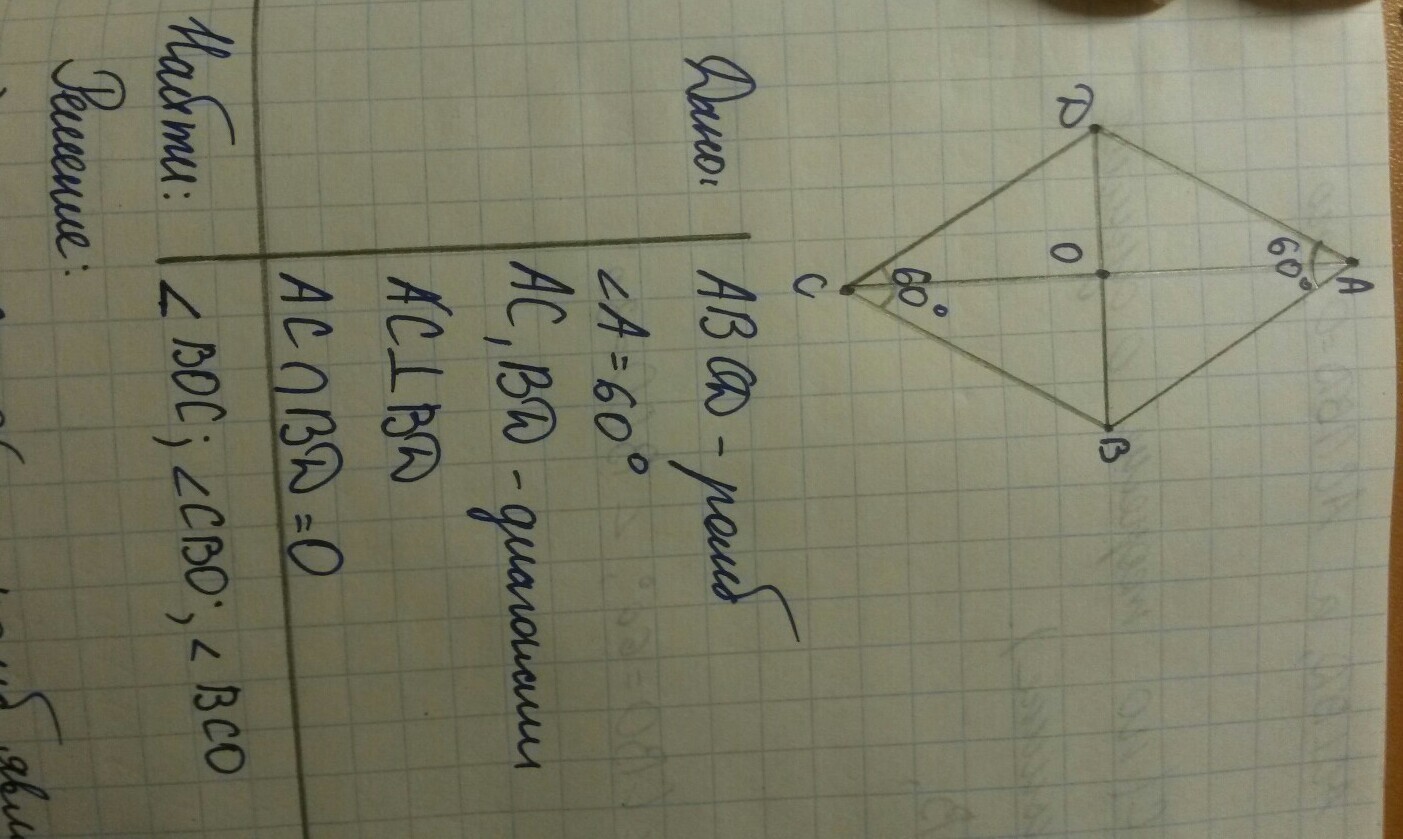 A
60°
D
O
B
60°
C
Дано:
ABCD - ромб
<A = 60°
AC, BD - диагонали
AC ⊥ BD
AC ∩ BD = O
Найти:
∠ BOC; <CBO; < BCO
Решение: